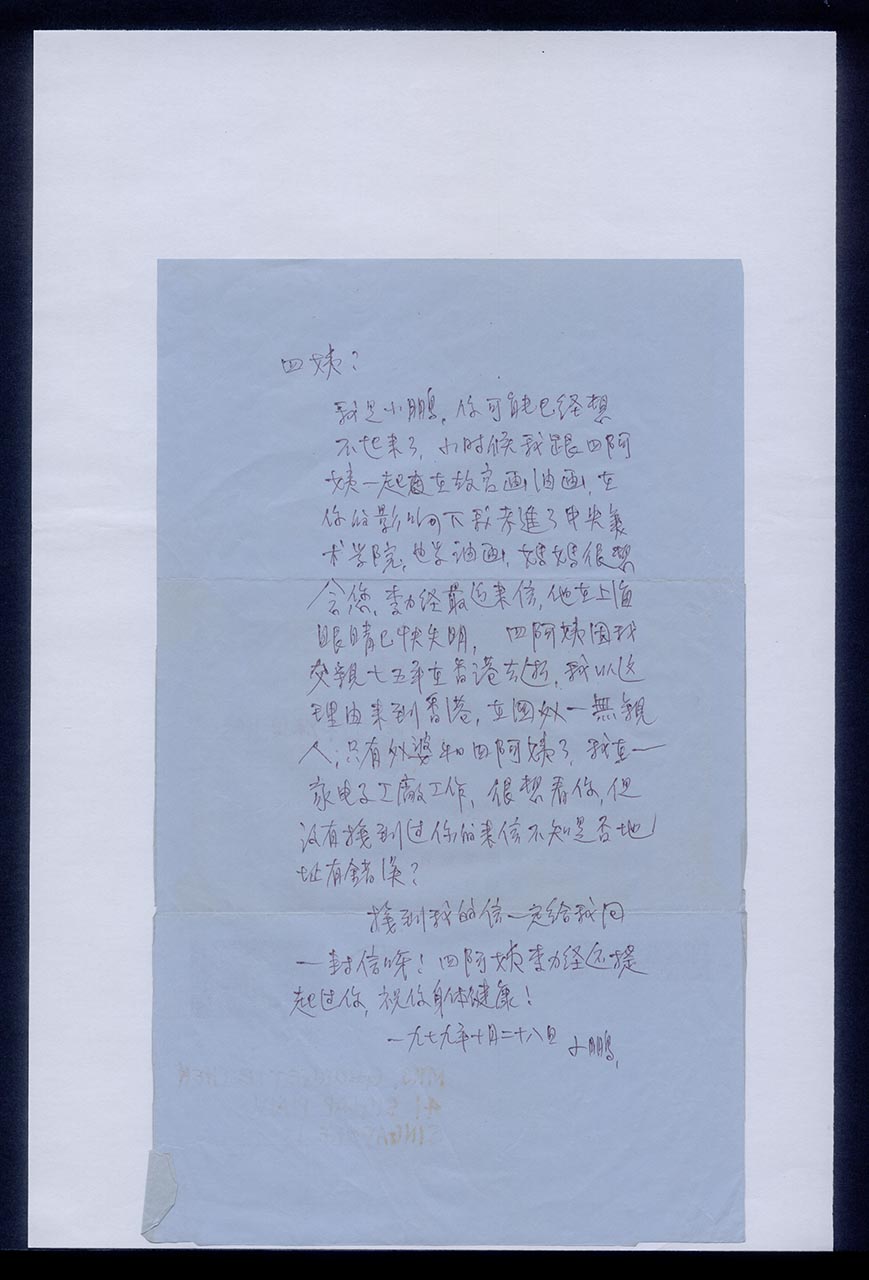 四姨:
我是小鹏,你可能已经想
不起来了,小时候我跟四阿
姨一起 在故宫画油画,在
你的影响下我考進了中央美
术学院,也学油画,妈妈很想
念您,李力经最近来信,他在上海
眼睛已快失明,四阿姨因我
父親七五年在香港去逝,我以这
理由来到香港,在國外一無親
人,只有外婆和四阿姨了,我在一
家电子工廠工作,很想看你,但
没有接到过你的来信不知是否地
址有錯误?
接到我的信一定给我回
一封信呀!四阿姨李力经还提
起过你,祝你身体健康!
一九七九年十月二十八日 小鹏,
41